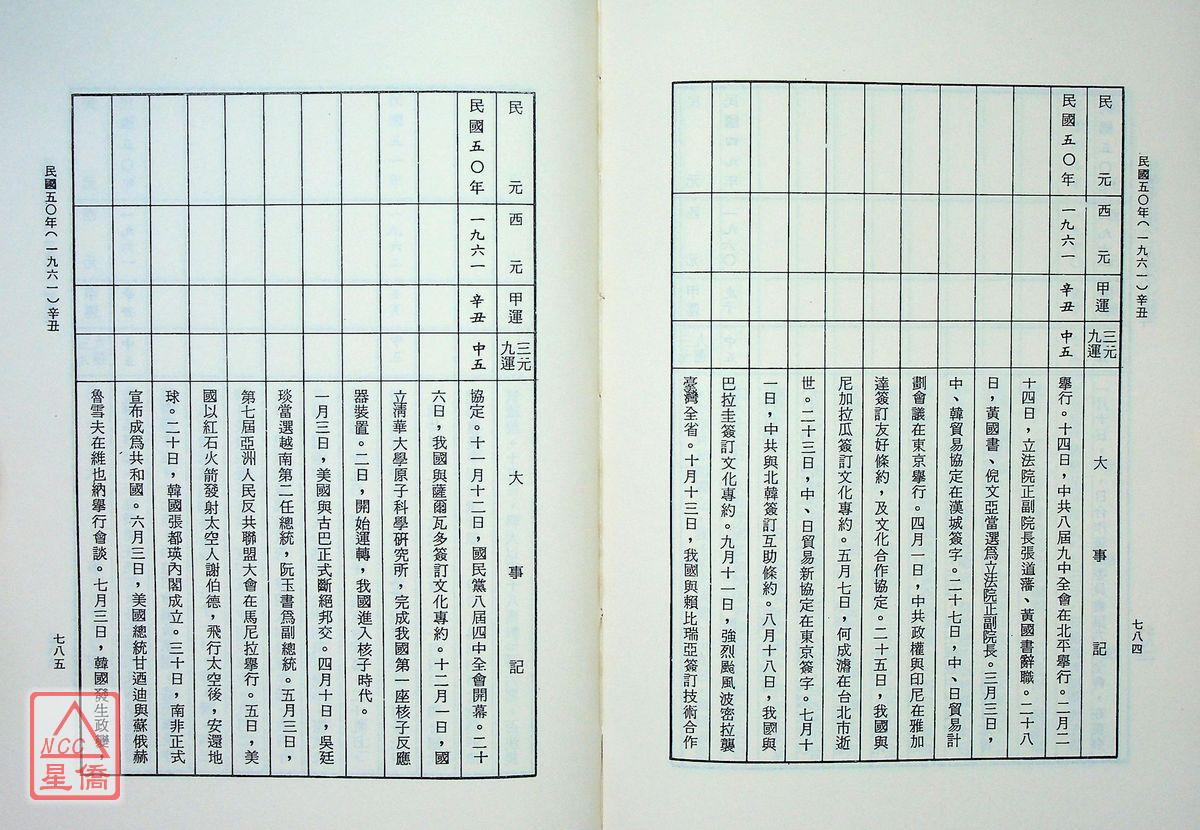 民國五〇年（一九六一）辛丑
七八四
民元
西元
甲運
三元九運
大事記
民國五〇年
一九六一
辛丑
中五
舉行。十四日，中共八屆九中全會在北平舉行。二月二
十四日，立法院正副院長張道藩、黃國書辭職。二十八
日，黃國書、倪文亞當選爲立法院正副院長。三月三日，
中、韓貿易協定在漢城簽字。二十七日，中、日貿易計
劃會議在東京舉行。四月一日，中共政權與印尼在雅加
達簽訂友好條約，及文化合作協定。二十五日，我國與
尼加拉瓜簽訂文化專約。五月七日，何成濬在台北市逝
世。二十三日，中、日貿易新協定在東京簽字。七月十
一日，中共與北韓簽訂互助條約。八月十八日，我國與
巴拉圭簽訂文化專約。九月十一日，強烈颱風波密拉襲
臺灣全省。十月十三日，我國與賴比瑞亞簽訂技術合作
民元
西元
甲運
三元九運
大事記
民國五〇年
一九六一
辛丑
中五
協定。十一月十二日，國民黨八屆四中全會開幕。二十
六日，我國與薩爾瓦多簽訂文化專約。十二月一日，國
立清華大學原子科學研究所，完成我國第一座核子反應
器裝置。二日，開始運轉，我國進入核子時代。
一月三日，美國與古巴正式斷絕邦交。四月十日，吳廷
琰當選越南第二任總統，阮玉書爲副總統。五月三日，
第七屆亞洲人民反共聯盟大會在馬尼拉舉行。五日，美
國以紅石火箭發射太空人謝伯德，飛行太空後，安還地
球。二十日，韓國張都瑛內閣成立。三十日，南非正式
宣布成爲共和國。六月三日，美國總統甘迺迪與蘇俄赫
魯雪夫在維也納舉行會談。七月三日，韓國發生政變，
民國五〇年（一九六一）辛丑
七八五
NCC
星僑